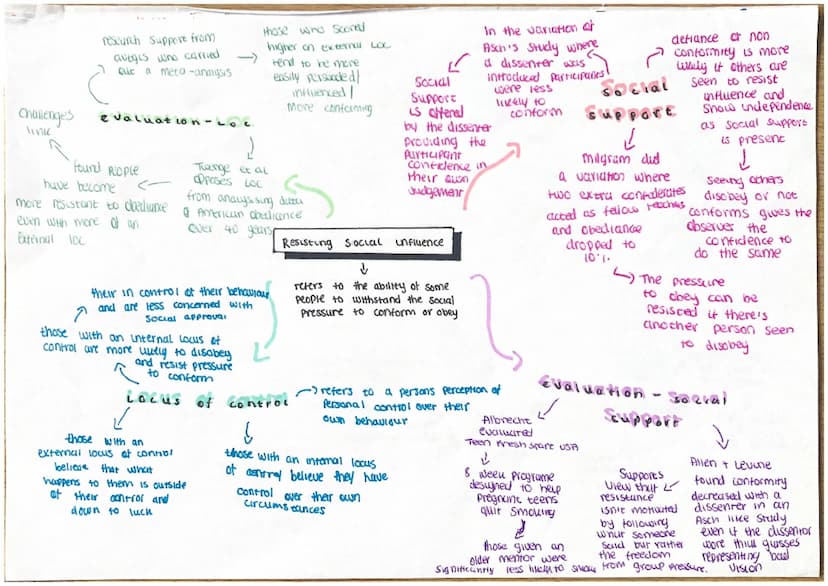 research support from
avtgis who carried
out a meta-analysis
those who scored
higher on external LOC
tend to be more
easily persuaded/
influenced/
more conforming
evaluation-LOC
challenges
link
found people
have become
more resistant to obediance
even with more of an
External LOC
Twenge et al
opposes LOC
from analysing data
of American obediance
over 40 years
In the variation of
Asch's study where
a dissenter was
introduced participants
were less
likely to
conform
Social
Support
is offered
by the dissenter
providing the
participant
confidence in
their own
Judgement
Social
Support
defiance or non
conformity is more
likely if others are
seen to resist
influence and
show independence
as social support
is present
seeing others
disobey or not
conforms gives the
observer the
confidence to
do the same
Milgram did
a variation where
two extra confederates
acted as fellow teachers
and obediance
dropped to
10%.
The pressure
to obey can be
resisted if there's
another person seen
to disobey
Resisting Social influence
refers to the ability of some
people to withstand the social
pressure to conform or obey
their in control of their behaviour
and are less concerned with
social approval
those with an internal locus of
control are more likely to disobey
and resist pressure
to conform
Locus of control
refers to a persons perception of
personal control over their
own behaviour
those with an
external locus of control
believe that what
happens to them is outside
of their control and
down to luck
those with an internal locus
of control believe they have
control over their own
circumstances
evaluation - Social
Support
Albrecht
evaluated
Teen Fresh start USA
8 week programe
designed to help
pregnant teens
quit smoking
those given an
older mentor were
significantly less likely to smoke
Allen + Levine
found conformity
decreased with a
dissenter in an
Asch like study
even if the dissentor
wore thick glasses
representing bad
vision
Supports
view that
resistance
isn't motivated
by following
what someone
said but rather
the freedom
from group pressure.